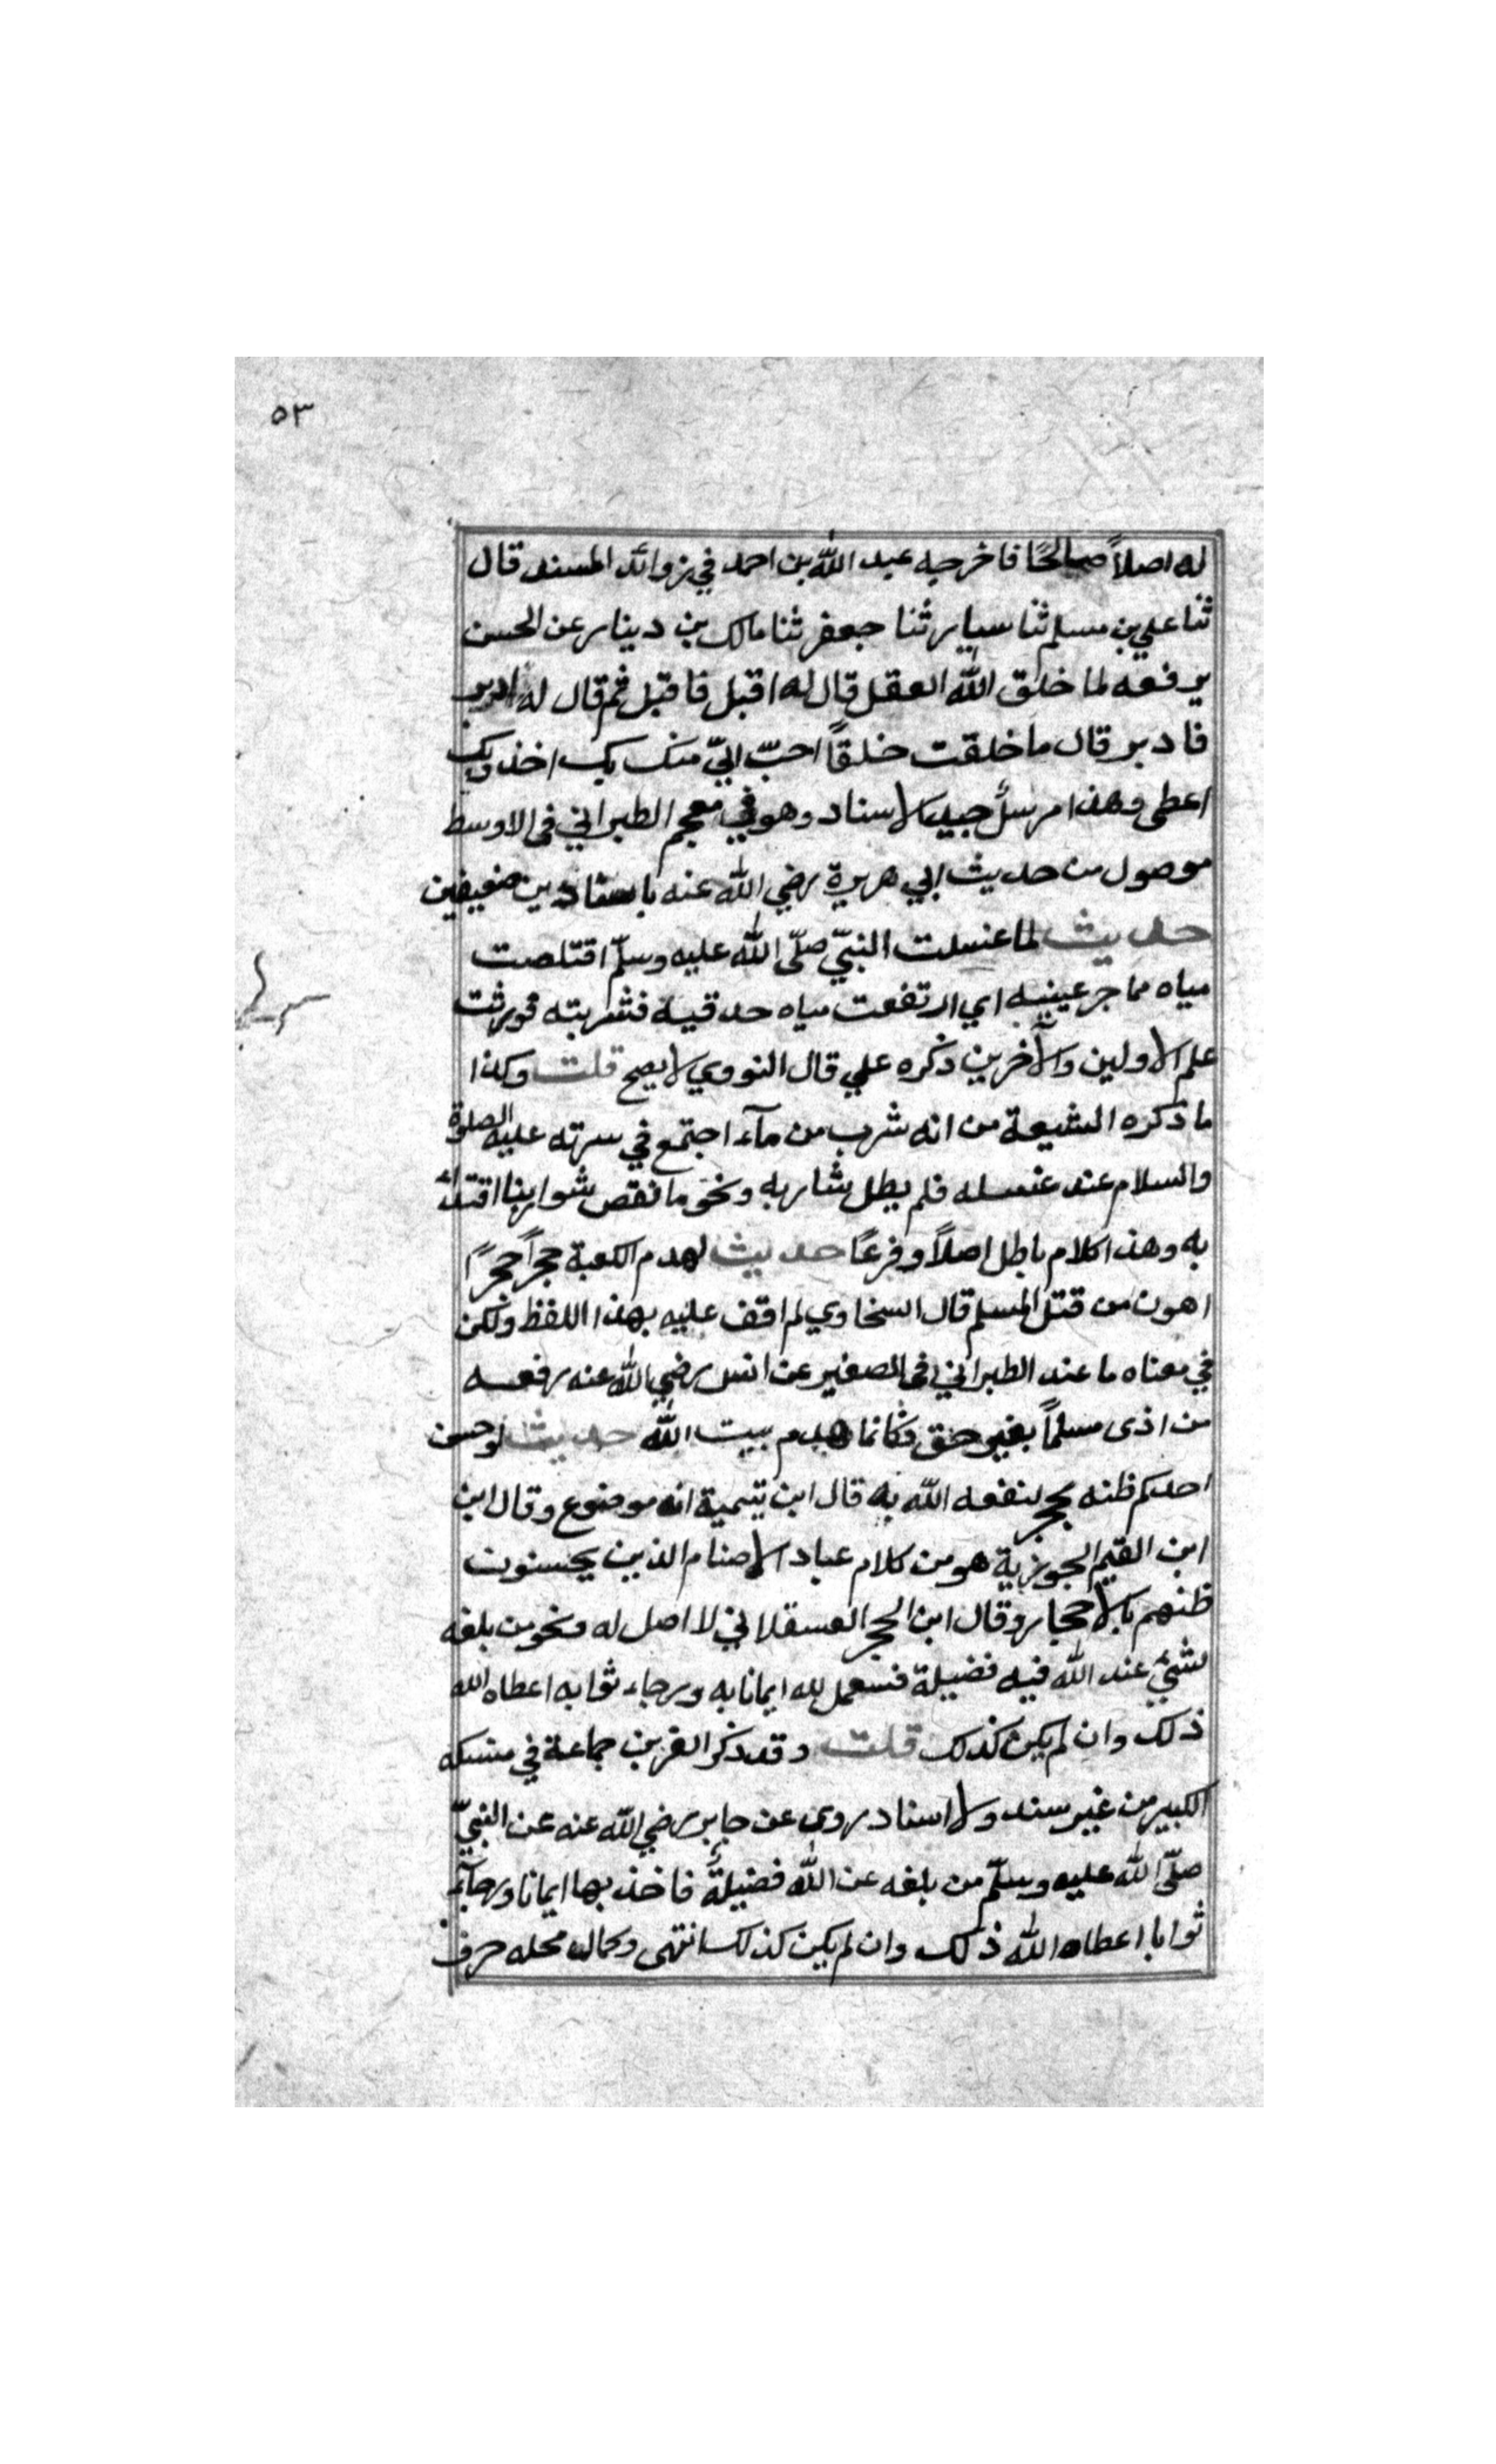 ٥٣
له اصلاً صالحًا فاخرجه عبد الله بن احمد في زوائد المسند قال
ثنا علي بن مسلم ثنا سيار ثنا جعفر ثنا مالك بن دينار عن الحسن
يرفعه لما خلق الله العقل قال له اقبل فاقبل ثم قال له ادبر
فادبر قال ما خلقت خلقًا احبّ اليّ منك بك اخذ وبك
اعطى وهذا مرسلٌ جيد الاسناد وهو في معجم الطبراني في الاوسط
موصول من حديث ابي هريرة رضي الله عنه باسنادين ضعيفين
حديث لما غسلت النبيّ صلّى الله عليه وسلّم اقتلصت
مياه مماجر عينيه اي ارتفعت مياه حدقيه فشربته فورثت
علم الاولين والآخرين ذكره علي قال النووي لا يصح قلت وكذا
ما ذكره الشيعة من انه شرب من مآء اجتمع في سرته عليه الصلوة
والسلام عند غسله فلم يطل شاربه ونحو ما نقص شواربنا اقتدآء
به وهذا كلام باطل اصلاً وفرعًا حديث لهدم الكعبة حجرًا حجرًا
اهون من قتل المسلم قال السخاوي لم اقف عليه بهذا اللفظ ولكن
في معناه ما عند الطبراني في الصغير عن انس رضي الله عنه رفعه
من اذى مسلمًا بغير حق فكانما هدم بيت الله حديث لو حسن
احدكم ظنه بحجر لنفعه الله به قال ابن تيمية انه موضوع وقال ابن
ابن القيم الجوزية هو من كلام عباد الاصنام الذين يحسنون
ظنهم بالاحجار وقال ابن الحجر العسقلاني لا اصل له ونحو من بلغه
شئ عند الله فيه فضيلة فسعمل لله ايمانا به ورجاء ثوابه اعطاه الله
ذلك وان لم يكن كذلك قلت وقد ذكر العز بن جماعة في منسكه
الكبير من غير سند ولا اسناد روى عن جابر رضي الله عنه عن النبيّ
صلّى الله عليه وسلّم من بلغه عن الله فضيلةٌ فاخذ بها ايمانا ورجآء
ثوابا اعطاه الله ذلك وان لم يكن كذلك انتهى وكمال محله حرف